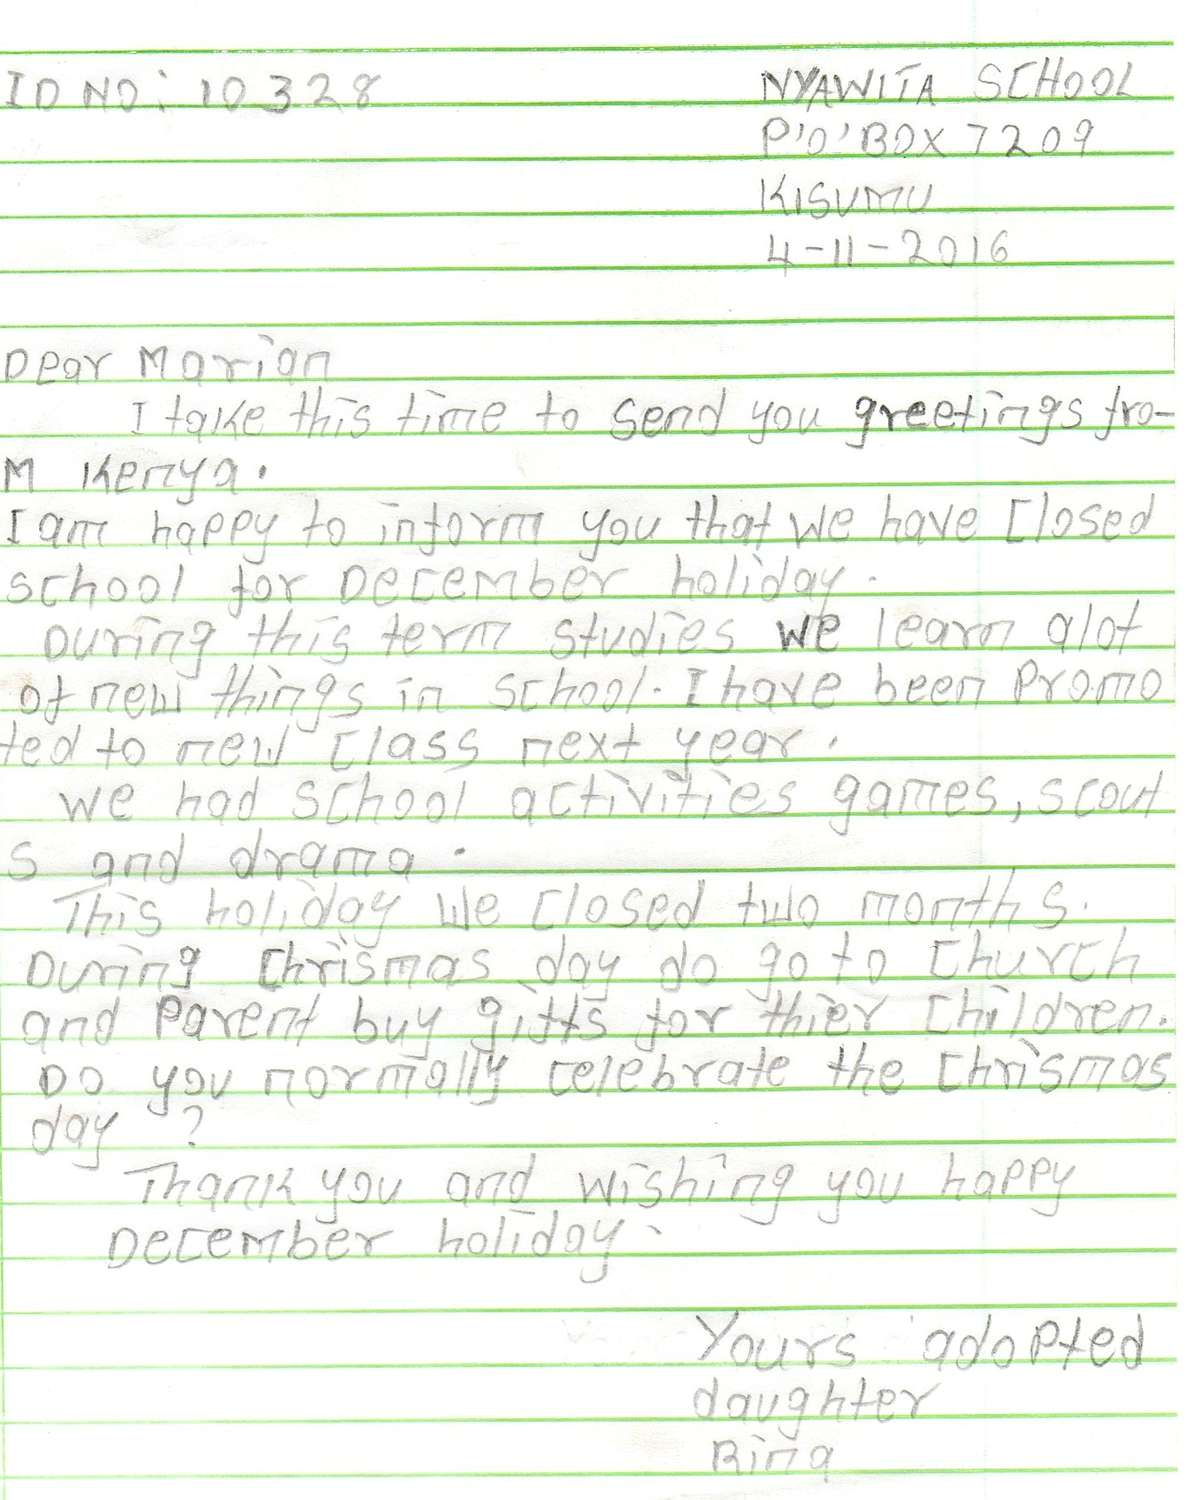 ID NO: 10328
NYAWITA SCHOOL
P'O'BOX 7209
KISUMU
4-11-2016
Dear Marian
I take this time to send you greetings fro-
m Kenya.
I am happy to inform you that we have closed
school for December holiday.
During this term studies we learn alot
of new things in school. I have been promo
ted to new class next year.
We had school activities games, scout
s and drama.
This holiday we closed two months.
During Chrismas day do go to church
and parent buy gifts for thier children.
Do you normally celebrate the Chrismas
day ?
Thank you and wishing you happy
December holiday.
Yours adopted
daughter
Rina